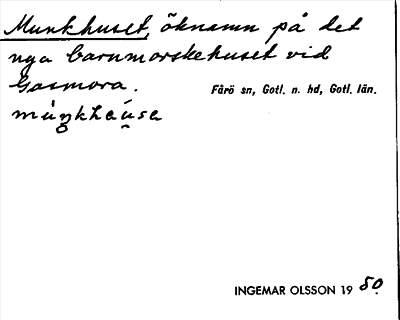 Munkhuset, öknamn på det
nya barnmorskehuset vid
Gasmora. Fårö sn, Gotl. n. hd, Gotl. län.
INGEMAR OLSSON 19 50.